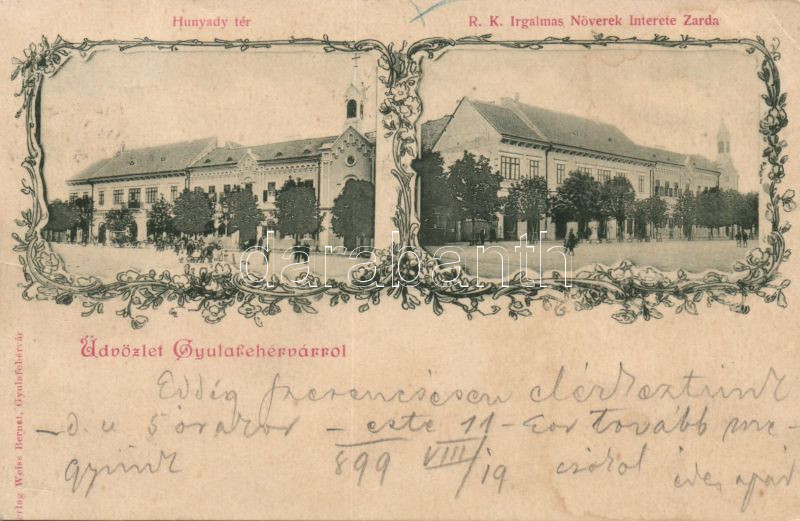 Hunyady tér
R. K. Irgalmas Növerek Interete Zarda
darabanth
Üdvözlet Gyulafehérvárrol
Eddig szerencsésen elérkeztünk
d. u 5 órakor – este 11-kor tovább me-
gyünk 899 VIII/19 csókol édes apád
Verlag Weiss Bernat, Gyulafehérvár